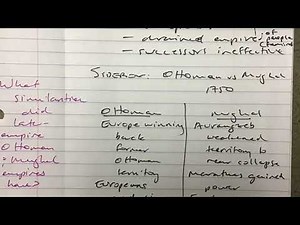 - drained empire of people
- successors ineffective
Sidebar: Ottoman vs Mughal
1750
What
similarities
did
later
empire
Ottoman
Mughal
empires
have?
Ottoman
Europe winning
back
former
Ottoman
territory
Europeans
mughal
Aurangzeb
weakened
territory to
near collapse
Marathas gained
power